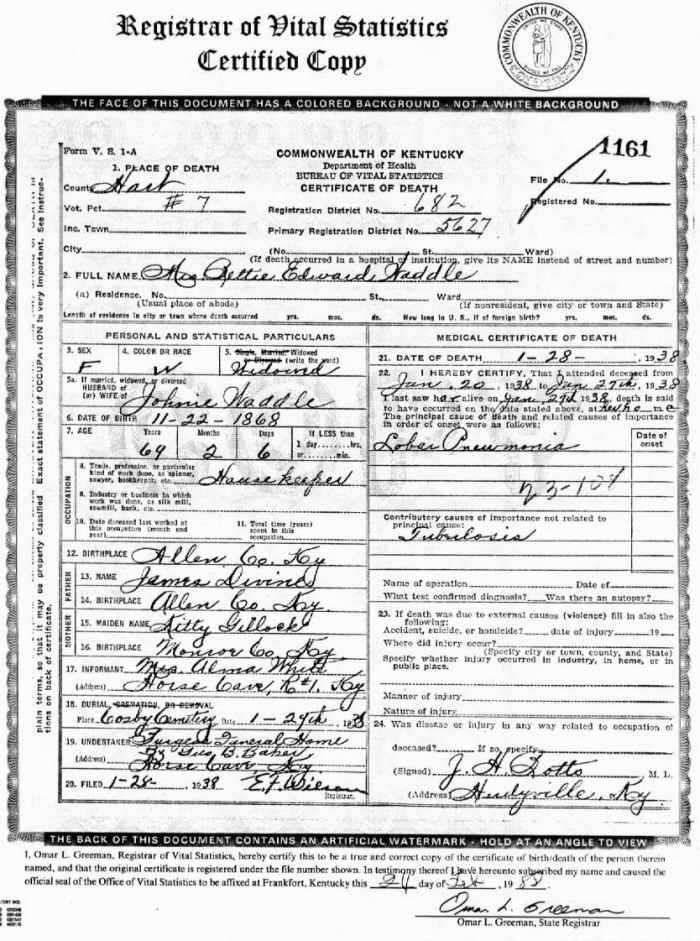 Registrar of Vital Statistics
Certified Copy
COMMONWEALTH OF KENTUCKY
THE FACE OF THIS DOCUMENT HAS A COLORED BACKGROUND - NOT A WHITE BACKGROUND
Form V. S. 1-A
COMMONWEALTH OF KENTUCKY
Department of Health
BUREAU OF VITAL STATISTICS
CERTIFICATE OF DEATH
1161
File No. 1.
Registered No.
1. PLACE OF DEATH
County Hart
Vot. Pct. # 7
Registration District No. 682
Inc. Town
Primary Registration District No. 5627
City (No. St. Ward)
(If death occurred in a hospital or institution, give its NAME instead of street and number)
2. FULL NAME Mrs Bettie Edward Waddle
(a) Residence, No. St., Ward
(Usual place of abode) (If nonresident, give city or town and State)
Length of residence in city or town where death occurred yrs. mos. ds. How long in U. S., if of foreign birth? yrs. mos. ds.
PERSONAL AND STATISTICAL PARTICULARS
3. SEX F
4. COLOR OR RACE W
5. Single, Married, Widowed or Divorced (write the word) Widowed
5a. If married, widowed, or divorced
HUSBAND of
(or) WIFE of Johnie Waddle
6. DATE OF BIRTH 11-22-1868
7. AGE Years Months Days If LESS than
69 2 6 1 day hrs.
or min.
OCCUPATION
8. Trade, profession, or particular kind of work done, as spinner, sawyer, bookkeeper, etc. House keeper
9. Industry or business in which work was done, as silk mill, sawmill, bank, etc.
10. Date deceased last worked at this occupation (month and year)
11. Total time (years) spent in this occupation
12. BIRTHPLACE Allen Co. Ky
FATHER
13. NAME James Divine
14. BIRTHPLACE Allen Co. Ky
MOTHER
15. MAIDEN NAME Kitty Gillock
16. BIRTHPLACE Monroe Co. Ky
17. INFORMANT Mrs. Alma
(Address) Horse Cave, R#1. Ky
18. BURIAL, CREMATION, OR REMOVAL
Place Cosby Cemetery Date 1-29th, 1938
19. UNDERTAKER Funeral Home
By Gus B. Baker
(Address) Horse Cave Ky
20. FILED 1-28- , 1938 E.F. Wilson
Registrar.
MEDICAL CERTIFICATE OF DEATH
21. DATE OF DEATH 1-28- , 1938
22. I HEREBY CERTIFY, That I attended deceased from
Jan. 20, 1938 to Jan 27th, 1938
I last saw her alive on Jan. 27th 1938, death is said
to have occurred on the date stated above, at her home
The principal cause of death and related causes of importance
in order of onset were as follows:
Date of onset
Lobar Pneumonia
23-108
Contributory causes of importance not related to
principal cause:
Tubulosis
Name of operation Date of
What test confirmed diagnosis? Was there an autopsy?
23. If death was due to external causes (violence) fill in also the
following:
Accident, suicide, or homicide? date of injury 19
Where did injury occur?
(Specify city or town, county, and State)
Specify whether injury occurred in industry, in home, or in
public place.
Manner of injury
Nature of injury
24. Was disease or injury in any way related to occupation of
deceased? If so, specify
(Signed) J. H. Botts M. D.
(Address) Hudyville, Ky
plain terms, so that it may be properly classified. Exact statement of OCCUPATION is very important. See instructions on back of certificate.
THE BACK OF THIS DOCUMENT CONTAINS AN ARTIFICIAL WATERMARK - HOLD AT AN ANGLE TO VIEW
I, Omar L. Greeman, Registrar of Vital Statistics, hereby certify this to be a true and correct copy of the certificate of birth/death of the person therein
named, and that the original certificate is registered under the file number shown. In testimony thereof I have hereunto subscribed my name and caused the
official seal of the Office of Vital Statistics to be affixed at Frankfort, Kentucky this 24 day of Feb, 1988.
Omar L. Greeman
Omar L. Greeman, State Registrar